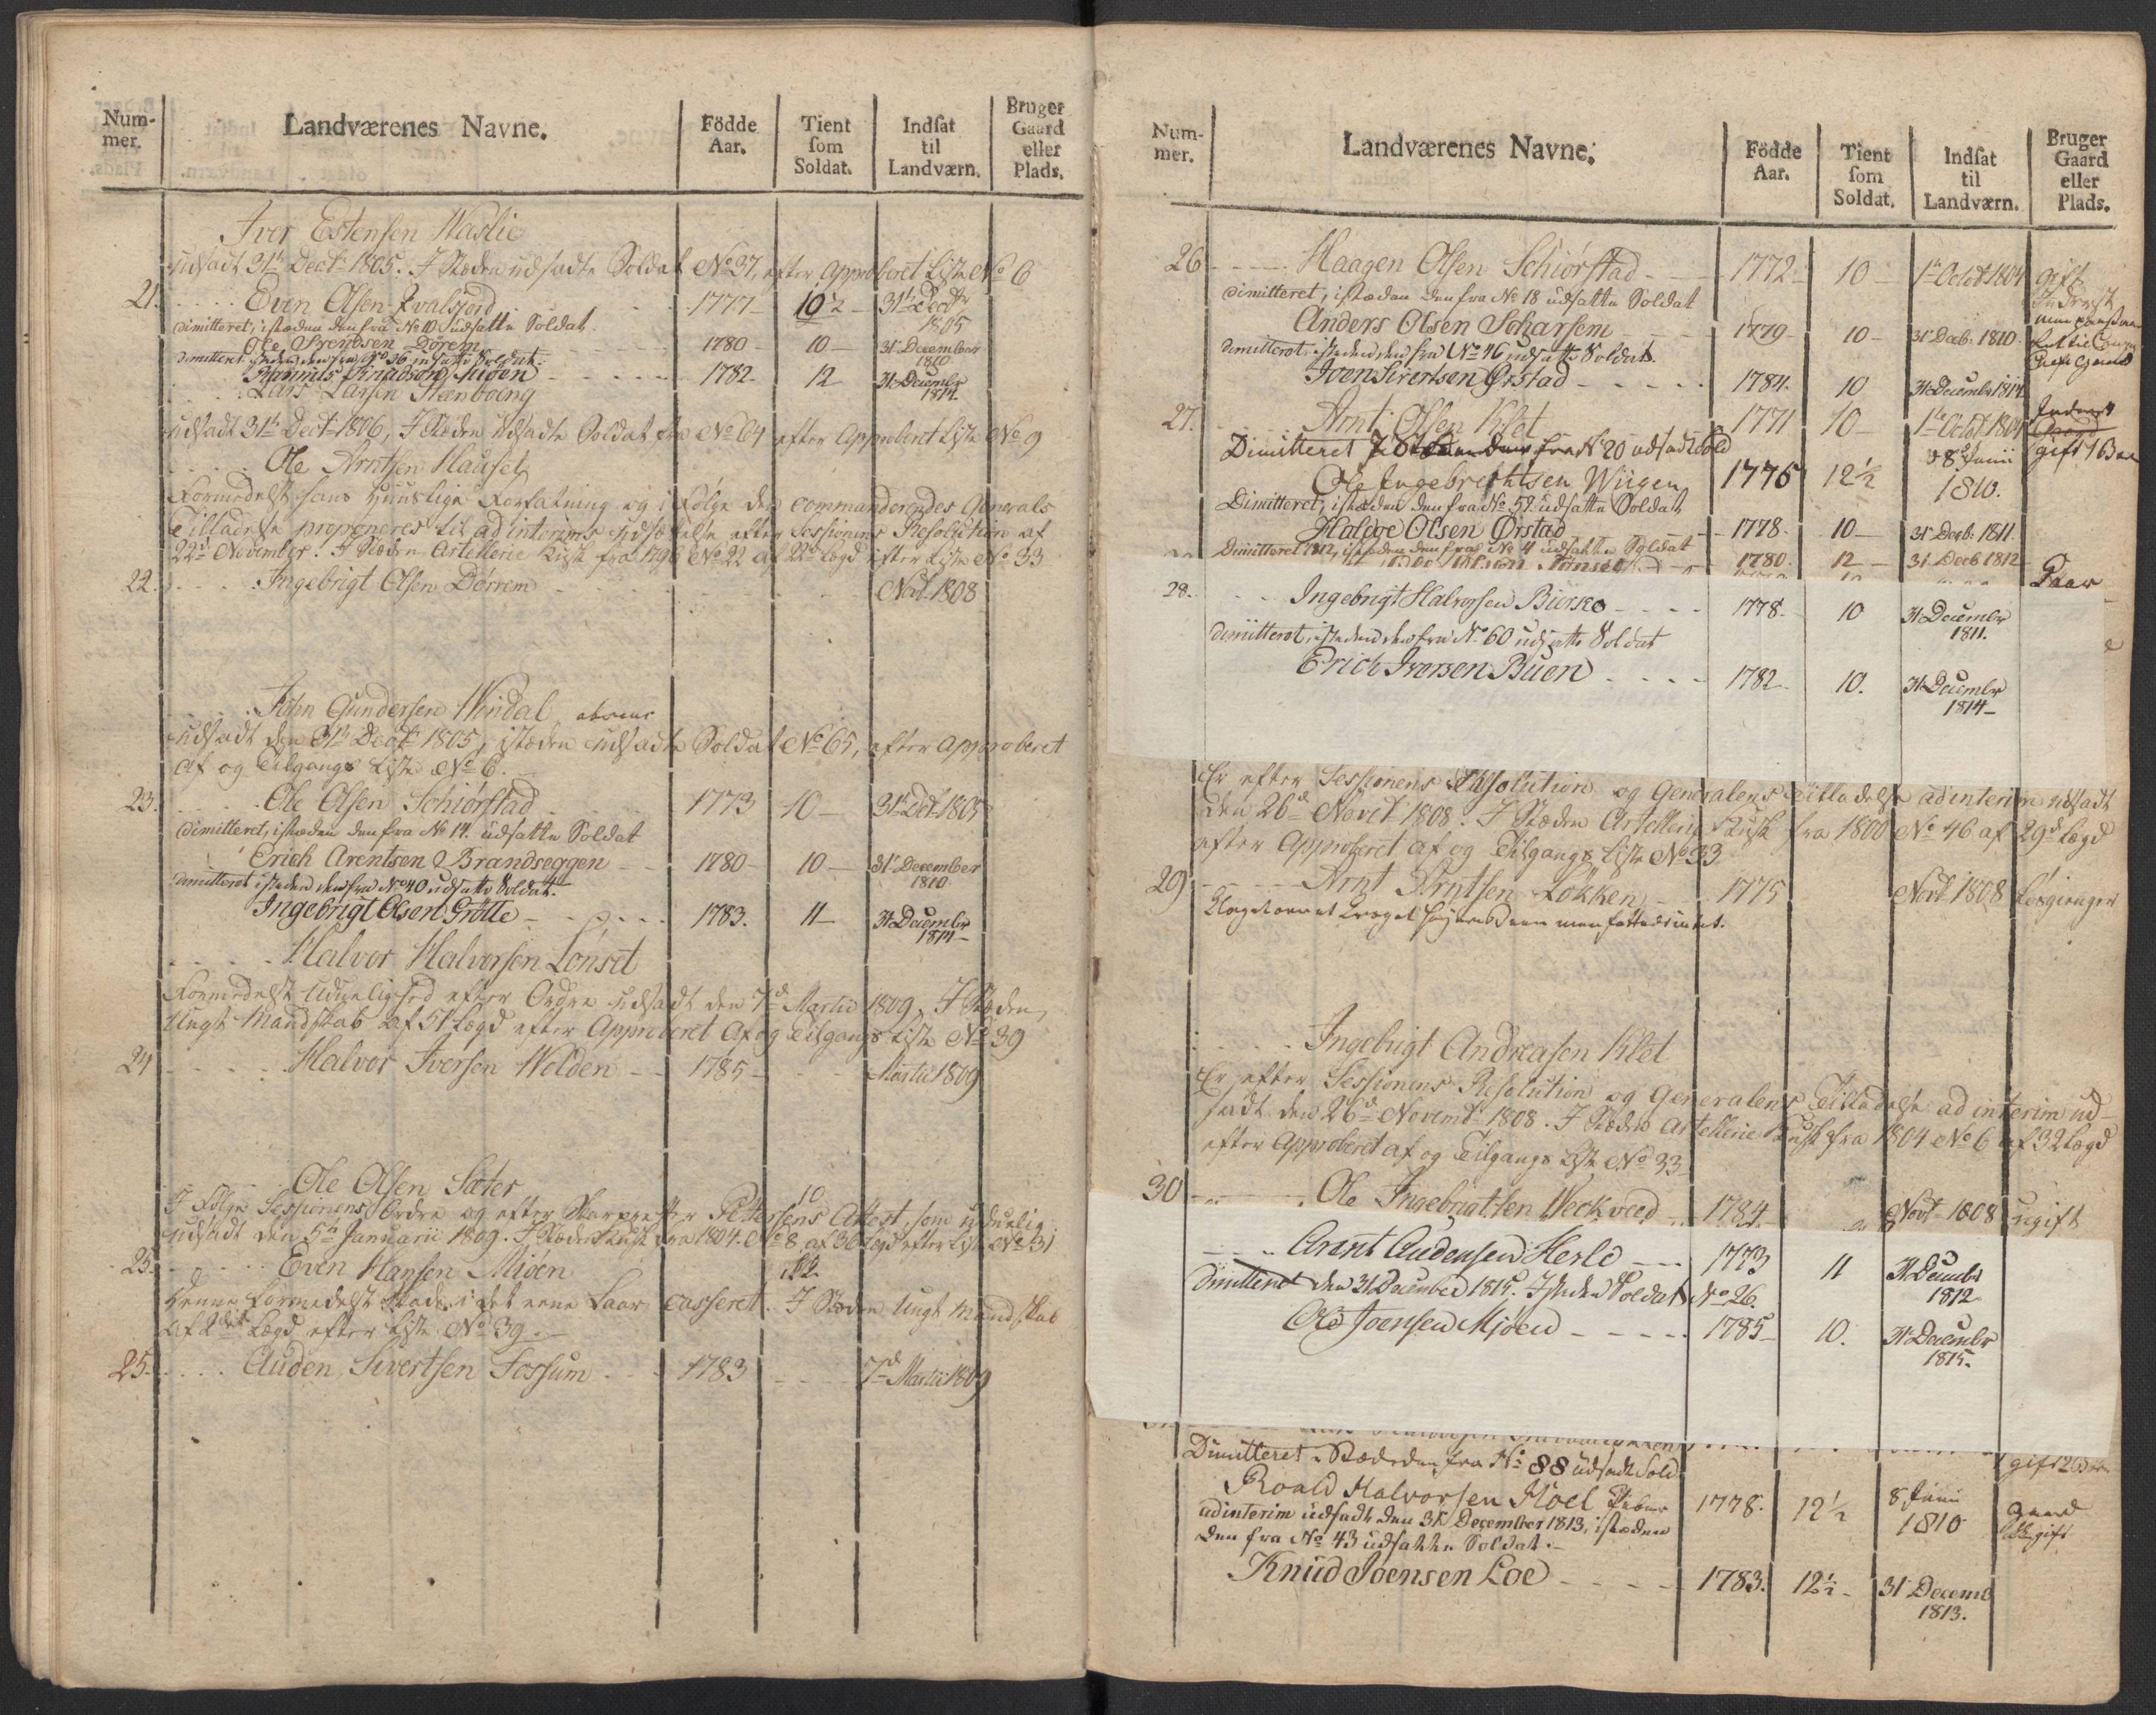 Num-
mer.
Landværenes Navne.
Födde
Aar.
Tient
som
Soldat.
Indsat
til
Landværn.
Bruger
Gaard
eller
Plads.
Iver Estensen Haslie
udsadt 31te Decbr 1805. I Stæden udsadte Soldat No 37, efter Approberet Liste No 6
21. Even Olsen Kvalsjord 1777 10½ 31te Decbr
1805
Dimitteret, istæden den fra No 10 udsatte Soldat.
Ole Svendsen Dörem 1780 10 31 December
1810
Dimitteret isteden den fra No 36 udsatte Soldat.
Knudsen 1782 12 31 Decembr
1814
Lars Larsen Steenboing
udsadt 31te Decbr 1806, I Stæden udsadte Soldat fra No 64 efter Approberet Liste No 9
Ole Arntsen Hausel
Formedelst hans huuslige Forfatning og i følge den commanderendes Generals
Tilladelse proponeres til ad interims udsættelse efter Sessionens Resolution af
22d November. I Stæden Artellerie Kusk fra 1798 No 22 af 22d Lægd efter Liste No 33
22. Ingebrigt Olsen Dörrem Novbr 1808
John Gundersen Windal
udsadt den 31te Decbr 1805, istæden udsadte Soldat No 65, efter Approberet
Af og Tilgangs Liste No 6.
23. Ole Olsen Schiörstad 1773 10 31te Decbr 1805
Dimitteret, istæden den fra No 14. udsatte Soldat
Erich Arentsen Brandseggen 1780 10 31te December
1810
Dimitteret isteden den fra No 40 udsatte Soldat.
Ingebrigt Olsen Grötte 1783. 11 31 Decembr
1814
Halvor Halvorsen Lönset
Formedelst Uduelighed efter Ordre udsadt den 7d Martii 1809, I Stæden
Ungt Mandskab af 51 Lægd efter Approberet Af og Tilgangs Liste No 39
24 Halvor Iversen Wolden 1785 Martii 1809
Ole Olsen Sæter 10
I Følge Sessionens Ordre og efter Petersens Attest, som uduelig
udsadt den 5te Januarii 1809. I Stæden Kusk fra 1804. No 8 af 36 Lægd efter Liste No 31
25. Even Hansen Miöen
Denne formedelst Skade i det eene Laar casseret. I Stæden Ungt Mandskab
af 2det Lægd efter Liste No 39.
25. Auden Sivertsen Fossum 1783 7d Martii 1809
Num-
mer.
Landværenes Navne.
Födde
Aar.
Tient
som
Soldat.
Indsat
til
Landværn.
Bruger
Gaard
eller
Plads.
26 Haagen Olsen Schiörstad 1772 10 1te Octobr 1804 gift
Dimitteret, istæden den fra No 18 udsatte Soldat
Anders Olsen Scharsem 1779 10 31 Decb: 1810
Dimitteret, isteden den fra No 46 udsatte Soldat.
Joen Sivertsen Örstad 1784. 10 31 Decembr 1814
27. Arnt Olsen Klet 1771 10 1te Octobr 1804
Dimitteret I Stæden den fra No 20 udsadt Sold
Ole Ingebrechtsen Wiigen 1775 12½ d 8 Junii
1810.
gift 1 Barn
Dimitteret, istæden den fra No 52 udsatte Soldat
Haldoe Olsen Örstad 1778. 10 31 Decb: 1811
Dimitteret 1812, istæden den fra No 4 udsatte Soldat
1780. 12 31 Decb 1812
28. Ingebrigt Halvorsen Biorko 1778. 10 31 Decembr
1811.
Dimitteret, isteden den fra No 60 udsatte Soldat
Erich Iversen Buen 1782 10. 31 Decembr
1814
Er efter Sessionens Resolution og Generalens Tilladelse ad interim udsadt
den 26d Novbr 1808. I Stæden Artellerie Kusk fra 1800 No 46 af 29d Lægd
efter Approberet af og Tilgangs Liste No 33
29 Arnt Arntsen Lökken 1775 Novbr 1808 Løsgienger
Ingebrigt Andreasen Klet
Er efter Sessionens Resolution og Generalens Tilladelse ad interim ud-
sadt den 26d Novembr 1808. I Stæden Artellerie Kusk fra 1804 No 6 af 32 Lægd
efter Approberet af og Tilgangs Liste No 33
30 Ole Ingebrigtsen Weckveed 1784 Novbr 1808 ugift
Arent Audensen Herlo 1773 11 31 Decembr
1812
Dimitteret den 31 December 1815. I steden Soldat No 26.
Ole Joensen Mjöen 1785 10. 31 Decembr
1815.
gift 2 Börn
Dimitteret i Stæden den fra No 88 udsadt Sold
Roald Halvorsen Hoel 1778. 12½ 8 Junii
1810
gaard
gift
ad interim udsadt den 31 December 1813, istæden
den fra No 43 udsatte Soldat.
Knud Joensen Loe 1783. 12½ 31 Decemb
1813.